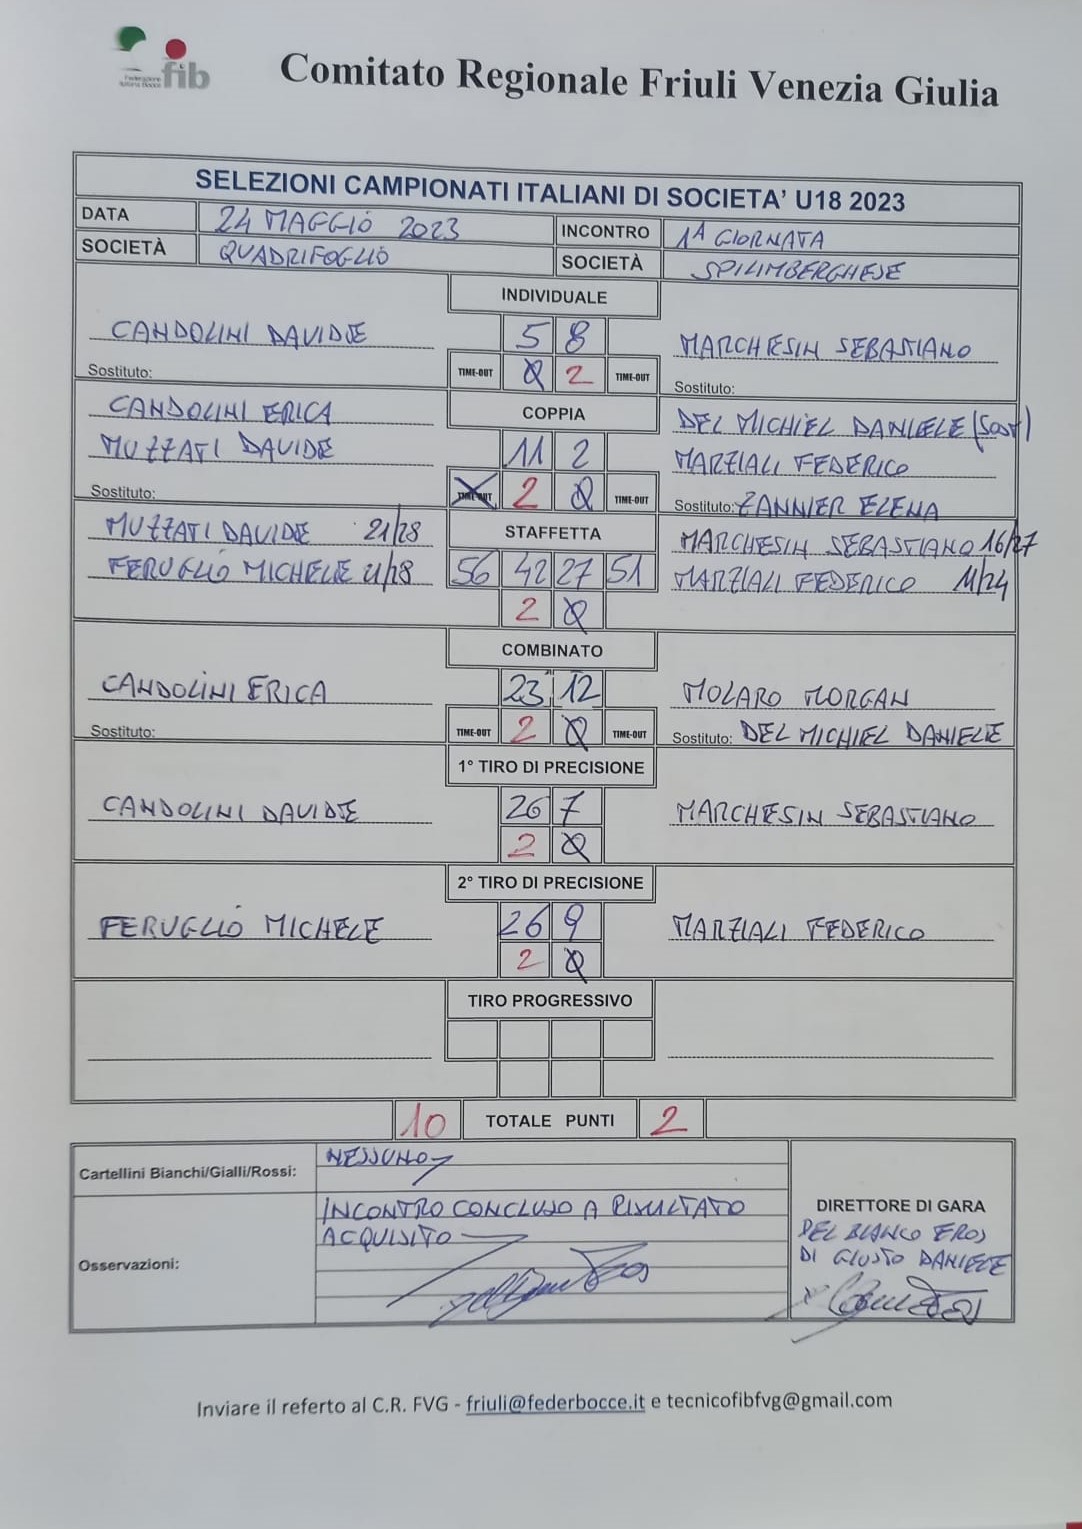 Federazione Italiana Bocce fib
Comitato Regionale Friuli Venezia Giulia
SELEZIONI CAMPIONATI ITALIANI DI SOCIETA' U18 2023
DATA 24 MAGGIO 2023 INCONTRO 1A GIORNATA
SOCIETÀ QUADRIFOGLIO SOCIETÀ SPILIMBERGHESE
INDIVIDUALE
CANDOLINI DAVIDE 5 8 MARCHESIN SEBASTIANO
Sostituto: TIME-OUT 0 2 TIME-OUT Sostituto:
CANDOLINI ERICA COPPIA DEL MICHIEL DANIELE (SOST)
MUZZATI DAVIDE 11 2 MARZIALI FEDERICO
Sostituto: TIME-OUT 2 0 TIME-OUT Sostituto: ZANNIER ELENA
MUZZATI DAVIDE 21/28 STAFFETTA MARCHESIN SEBASTIANO 16/27
FERUGLIO MICHELE 21/28 56 42 27 51 MARZIALI FEDERICO 11/24
2 0
COMBINATO
CANDOLINI ERICA 23 12 MOLARO MORGAN
Sostituto: TIME-OUT 2 0 TIME-OUT Sostituto: DEL MICHIEL DANIELE
1° TIRO DI PRECISIONE
CANDOLINI DAVIDE 26 7 MARCHESIN SEBASTIANO
2 0
2° TIRO DI PRECISIONE
FERUGLIO MICHELE 26 9 MARZIALI FEDERICO
2 0
TIRO PROGRESSIVO
10 TOTALE PUNTI 2
Cartellini Bianchi/Gialli/Rossi: NESSUNO
Osservazioni: INCONTRO CONCLUSO A RISULTATO
ACQUISITO
DIRETTORE DI GARA
DEL BIANCO EROS
DI GIUSTO DANIELE
Inviare il referto al C.R. FVG - friuli@federbocce.it e tecnicofibfvg@gmail.com